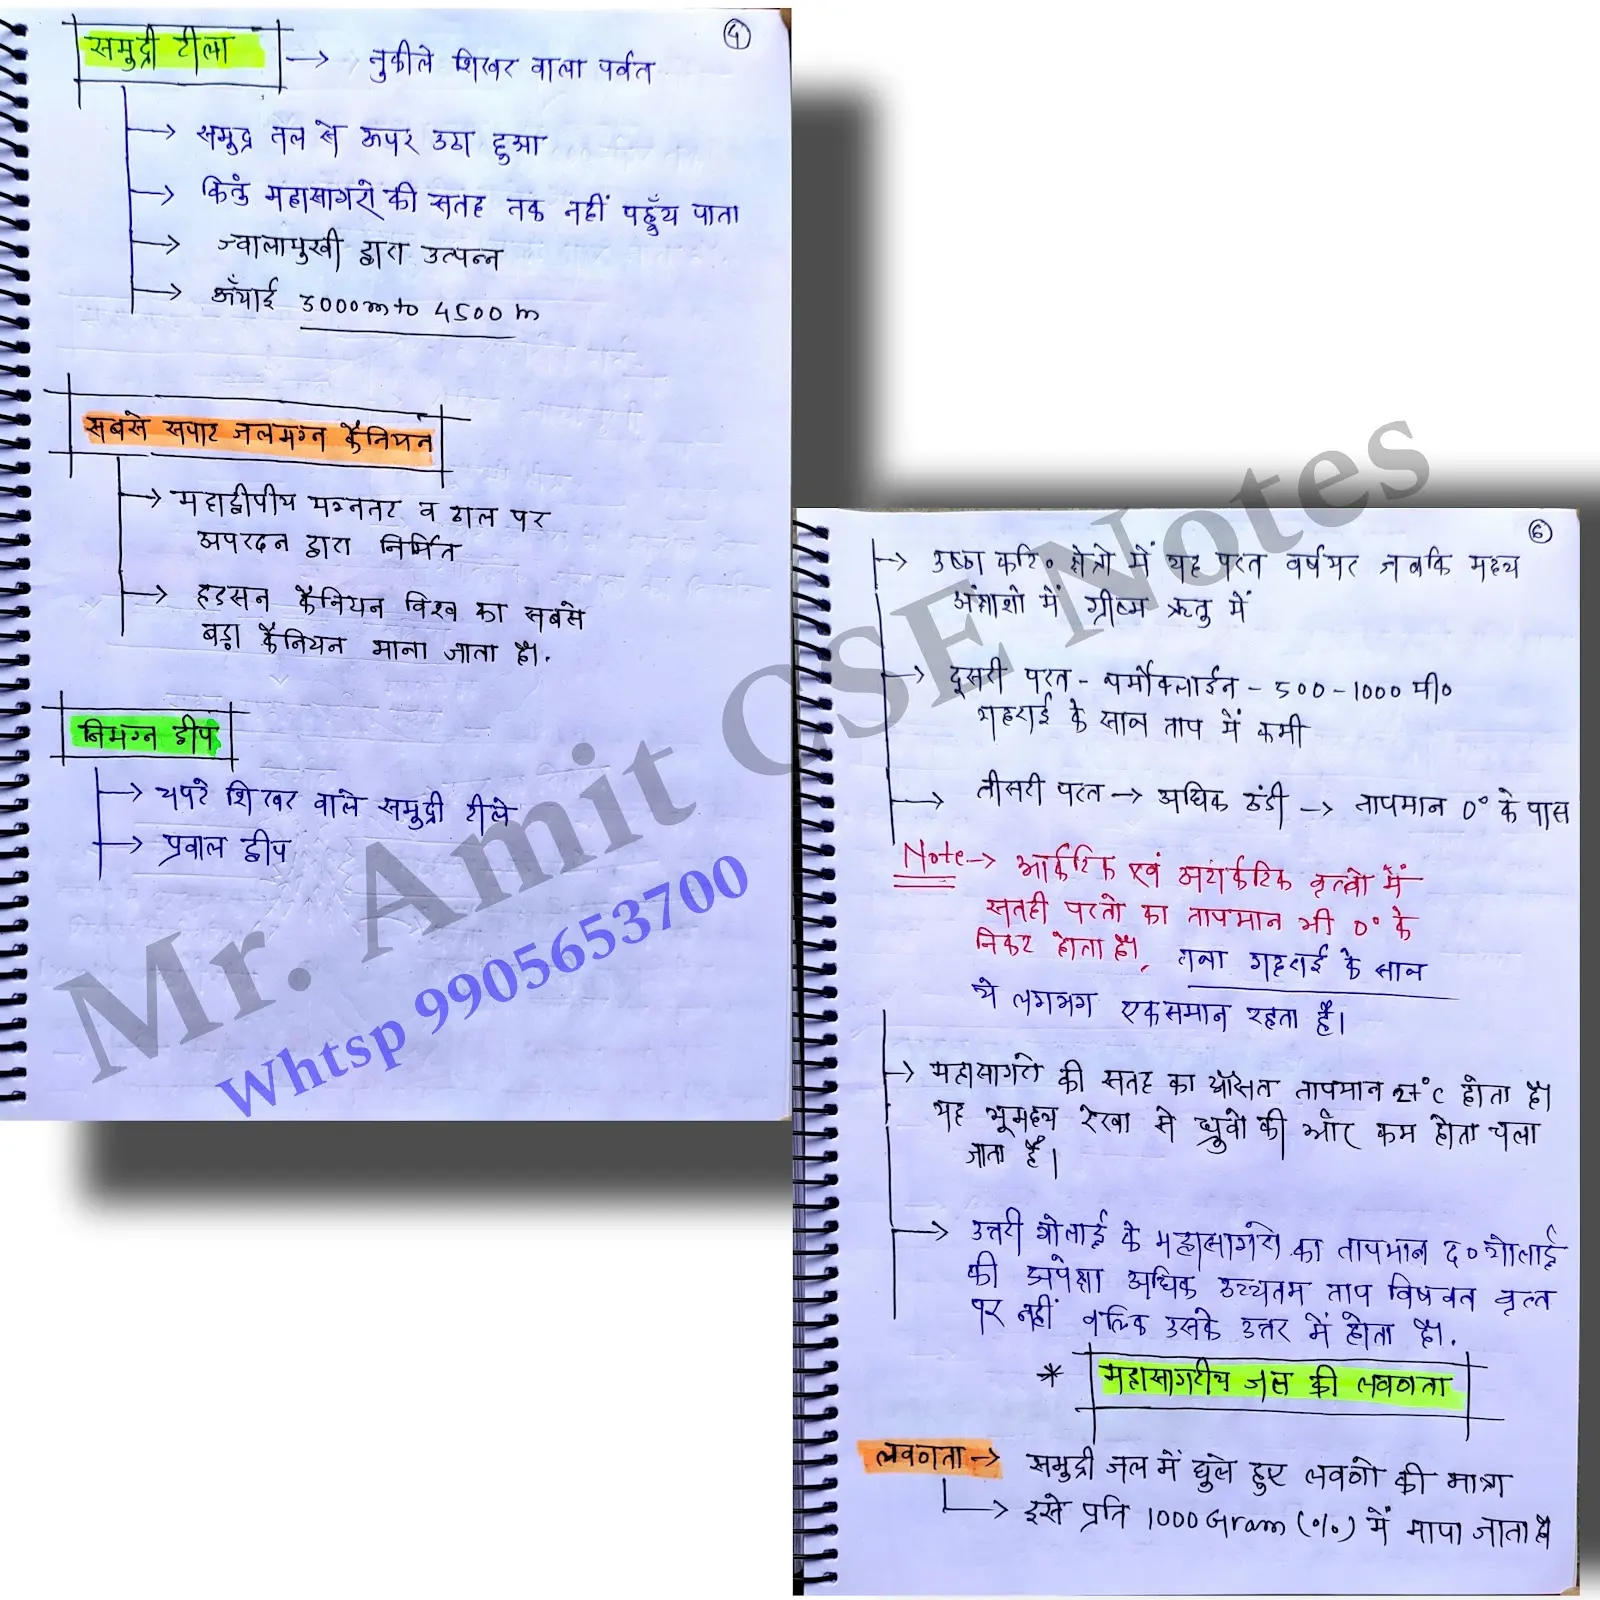 4
समुद्री टीला → नुकीले शिखर वाला पर्वत
→ समुद्र तल से ऊपर उठा हुआ
→ किंतु महासागरो की सतह तक नहीं पहुँच पाता
→ ज्वालामुखी द्वारा उत्पन्न
→ ऊँचाई 3000m to 4500 m
सबसे सपाट जलमग्न कैनियन
→ महाद्वीपीय मग्नतट व ढाल पर
अपरदन द्वारा निर्मित
→ हडसन कैनियन विश्व का सबसे
बड़ा कैनियन माना जाता है।.
निमग्न द्वीप
→ चपटे शिखर वाले समुद्री टीले
→ प्रवाल द्वीप
6
→ उष्ण कटि० क्षेत्रो में यह परत वर्षभर जबकि मध्य
अंक्षाशो में ग्रीष्म ऋतु में
→ दूसरी परत - थर्मोक्लाईन - 500-1000 मी०
गहराई के साथ ताप में कमी
→ तीसरी परत → अधिक ठंडी → तापमान 0° के पास
Note → आर्कटिक एवं अंटार्कटिक वृत्तो में
सतही परतो का तापमान भी 0° के
निकट होता है। तथा गहराई के साथ
ये लगभग एकसमान रहता है।
→ महासागरो की सतह का औसत तापमान 27°c होता है।
यह भूमध्य रेखा से ध्रुवो की ओर कम होता चला
जाता है।
→ उत्तरी गोलार्द्ध के महासागरो का तापमान द० गोलार्द्ध
की अपेक्षा अधिक उच्चतम ताप विषवत वृत्त
पर नहीं बल्कि उसके उत्तर में होता है।.
* महासागरीय जल की लवणता
लवणता → समुद्री जल में घुले हुए लवणो की मात्रा
→ इसे प्रति 1000 Gram (%) में मापा जाता है
Mr. Amit GSE Notes
Whtsp 9905653700